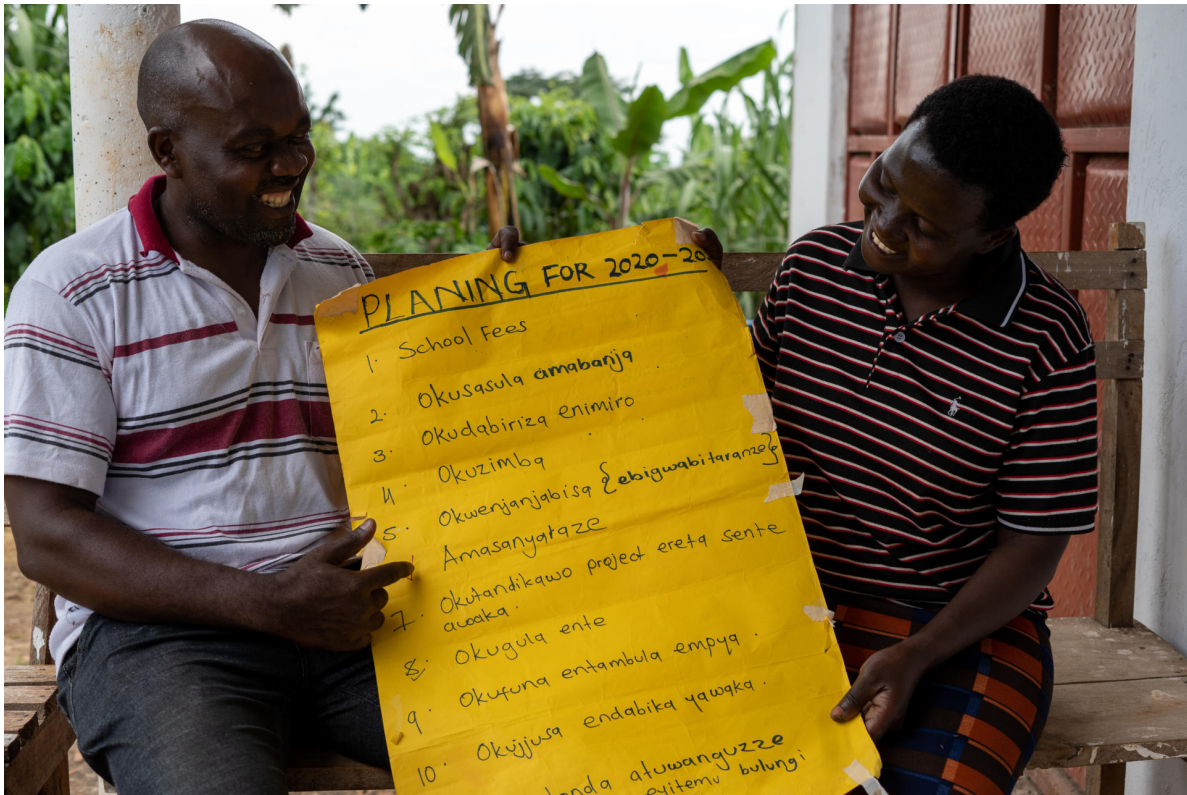 PLANING FOR 2020-20
1. School Fees
2. Okusasula amabanja
3. Okudabiriza enimiro
4 Okuzimba
5. Okwenjanjabisa {ebigwabitaranze}
Amasanyaraze
7. Okutandikawo project ereta sente
awaka.
8. Okugula ente
9 Okufuna entambula empya.
10. Okujjusa endabika yawaka.
atuwanguzze
eyitemu bulungi